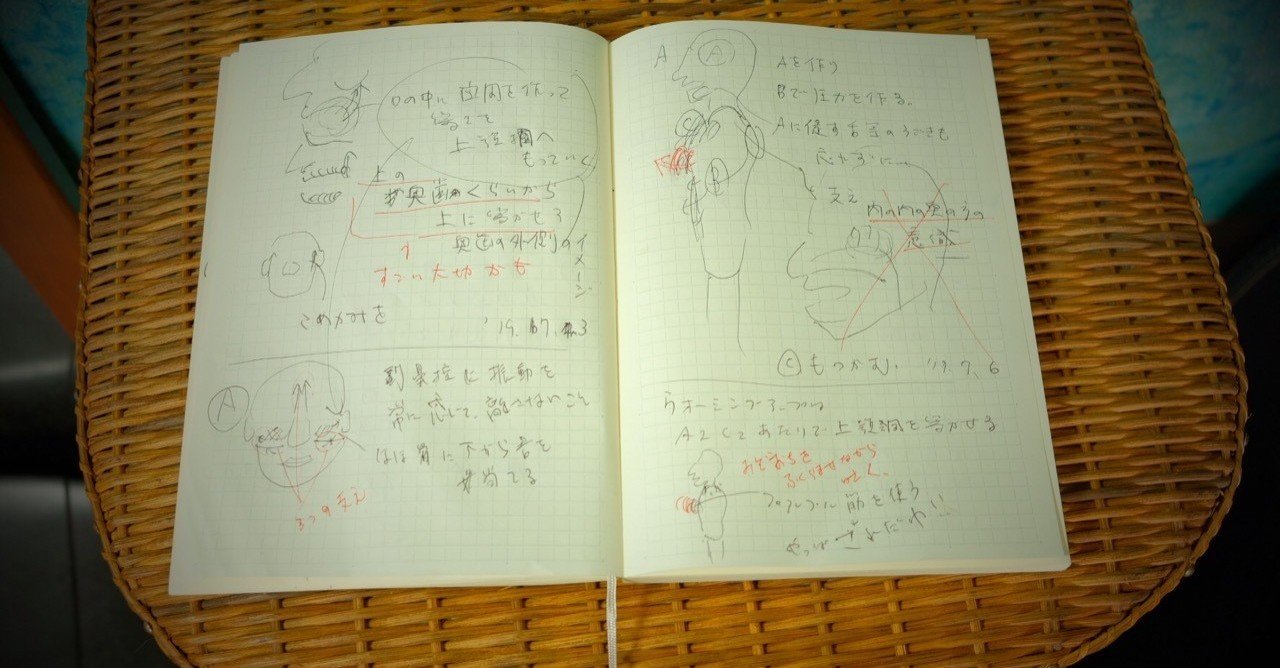 口の中に空間を作って
響きを
上顎洞へ
もっていく
上の
奥歯のくらいから
上に響かせる
奥歯の外側のイメージ
すごい大切かも
こめかみを
'19.7.3
A
副鼻腔に振動を
常に感じて、離さないこと
ほほ骨に下から音を
当てる
3つの支え
A
A
Aを作り
Bで圧力を作る。
Aに促す舌等のうごきも
忘れずに…
C
B
支え
内の内の奥の方の
意識
Cもつかむ。 '19.7.6
ウォーミングアップは
A2 C2 あたりで上顎洞を響かせる
ふくらませながら
吐く。
筋を使う
やっぱ